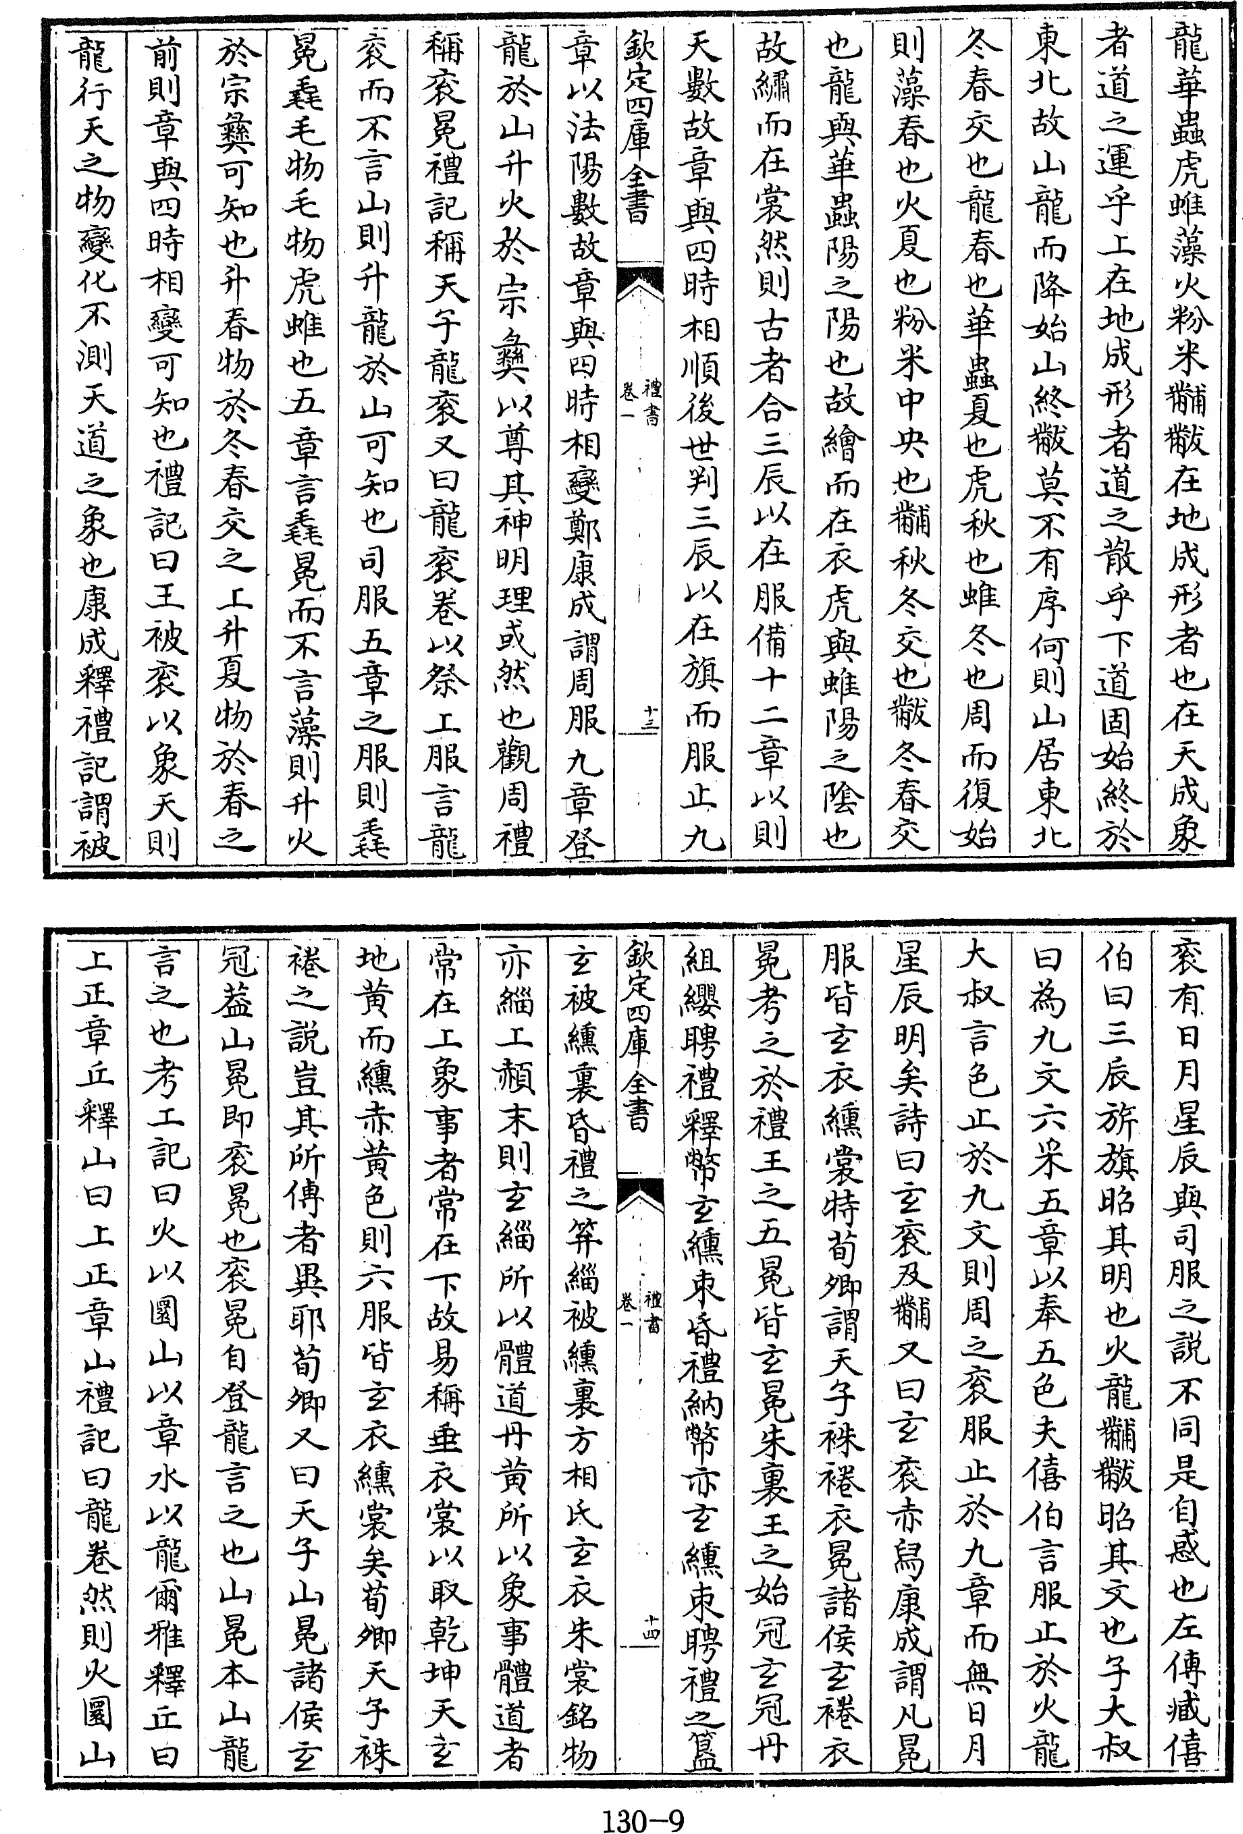 龍華蟲虎蜼藻火粉米黼黻在地成形者也在天成象
者道之運乎上在地成形者道之散乎下道固始終於
東北故山龍而降始山終黻莫不有序何則山居東北
冬春交也龍春也華蟲夏也虎秋也蜼冬也周而復始
則藻春也火夏也粉米中央也黼秋冬交也黻冬春交
也龍與華蟲陽之陽也故繪而在衣虎與蜼陽之陰也
故繡而在裳然則古者合三辰以在服備十二章以則
天數故章與四時相順後世判三辰以在旗而服止九
欽定四庫全書
禮書
卷一
十三
章以法陽數故章與四時相變鄭康成謂周服九章登
龍於山升火於宗彝以尊其神明理或然也觀周禮
稱衮冕禮記稱天子龍衮又曰龍衮卷以祭上服言龍
衮而不言山則升龍於山可知也司服五章之服則毳
冕毳毛物毛物虎蜼也五章言毳冕而不言藻則升火
於宗彝可知也升春物於冬春交之上升夏物於春之
前則章與四時相變可知也禮記曰王被衮以象天則
龍行天之物變化不測天道之象也康成釋禮記謂被
衮有日月星辰與司服之說不同是自惑也左傳臧僖
伯曰三辰旂旗昭其明也火龍黼黻昭其文也子大叔
曰為九文六采五章以奉五色夫僖伯言服止於火龍
大叔言色止於九文則周之衮服止於九章而無日月
星辰明矣詩曰玄衮及黼又曰玄衮赤舄康成謂凡冕
服皆玄衣纁裳特荀卿謂天子袾裷衣冕諸侯玄裷衣
冕考之於禮王之五冕皆玄冕朱裏王之始冠玄冠丹
組纓聘禮釋幣玄纁束昏禮納幣亦玄纁束聘禮之簋
欽定四庫全書
禮書
卷一
十四
玄被纁裏昏禮之笲緇被纁裏方相氏玄衣朱裳銘物
亦緇上赬末則玄緇所以體道丹黃所以象事體道者
常在上象事者常在下故易稱垂衣裳以取乾坤天玄
地黃而纁赤黃色則六服皆玄衣纁裳矣荀卿天子袾
裷之說豈其所傳者異耶荀卿又曰天子山冕諸侯玄
冠葢山冕即衮冕也衮冕自登龍言之也山冕本山龍
言之也考工記曰火以圜山以章水以龍爾雅釋丘曰
上正章丘釋山曰上正章山禮記曰龍卷然則火圜山
130-9